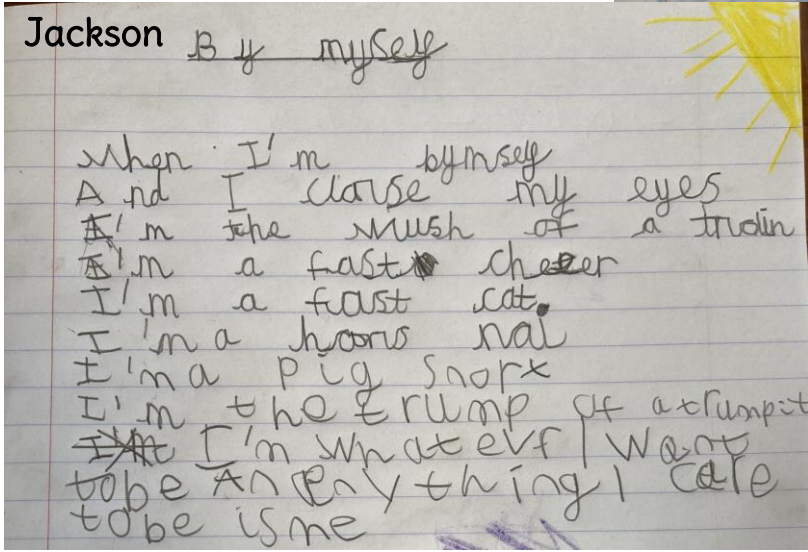 Jackson
By mysely
When I'm bymsely
And I clouse my eyes
I'm the wush of a train
I'm a fast cheeer
I'm a fast cat.
I'm a hoors nai
I'm a pig snort
I'm the trump of a trumpit
I'm whatevr I want
tobe An enything I care
tobe is me